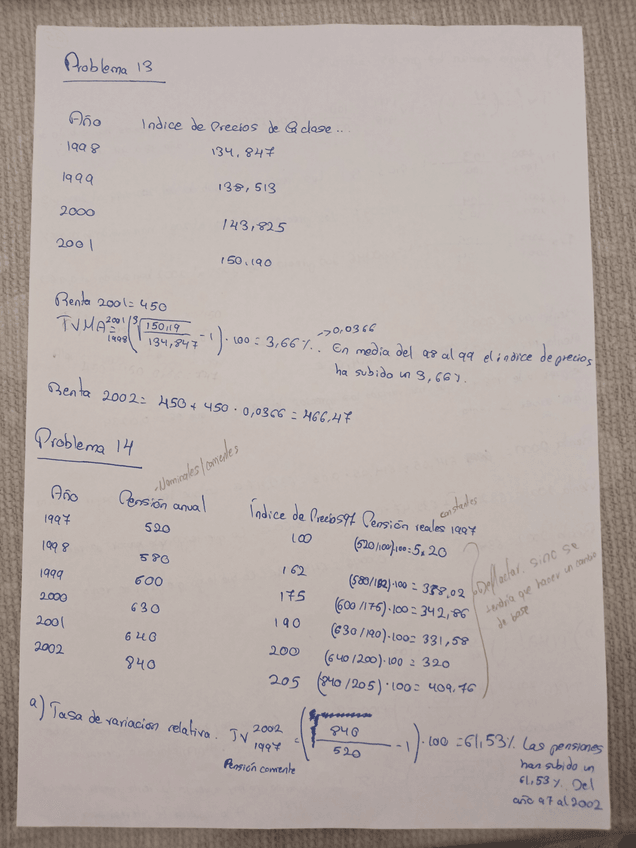 Problema 13
Año Indice de Precios de la clase...
1998 134,847
1999 138,513
2000 143,825
2001 150,190
Renta 2001 = 450
TVMA 2001 1998 = (3√150,19/134,847 - 1) · 100 = 3,66%. → 0,0366 En media del 98 al 99 el índice de precios
ha subido un 3,66%.
Renta 2002 = 450 + 450 · 0,0366 = 466,47
Problema 14
Nominales/corrientes
Año Pensión anual Índice de Precios 97 Pensión reales 1997 constantes
1997 520 100 (520/100)·100 = 520
1998 580 162 (580/162)·100 = 358,02
1999 600 175 (600/175)·100 = 342,86
2000 630 190 (630/190)·100 = 331,58
2001 640 200 (640/200)·100 = 320
2002 840 205 (840/205)·100 = 409,76
Deflactar. sino se
tendría que hacer un cambio
de base
a) Tasa de variación relativa. TV 2002 1997 = (840/520 - 1) · 100 = 61,53% Las pensiones
Pensión corriente
han subido un
61,53% Del
año 97 al 2002